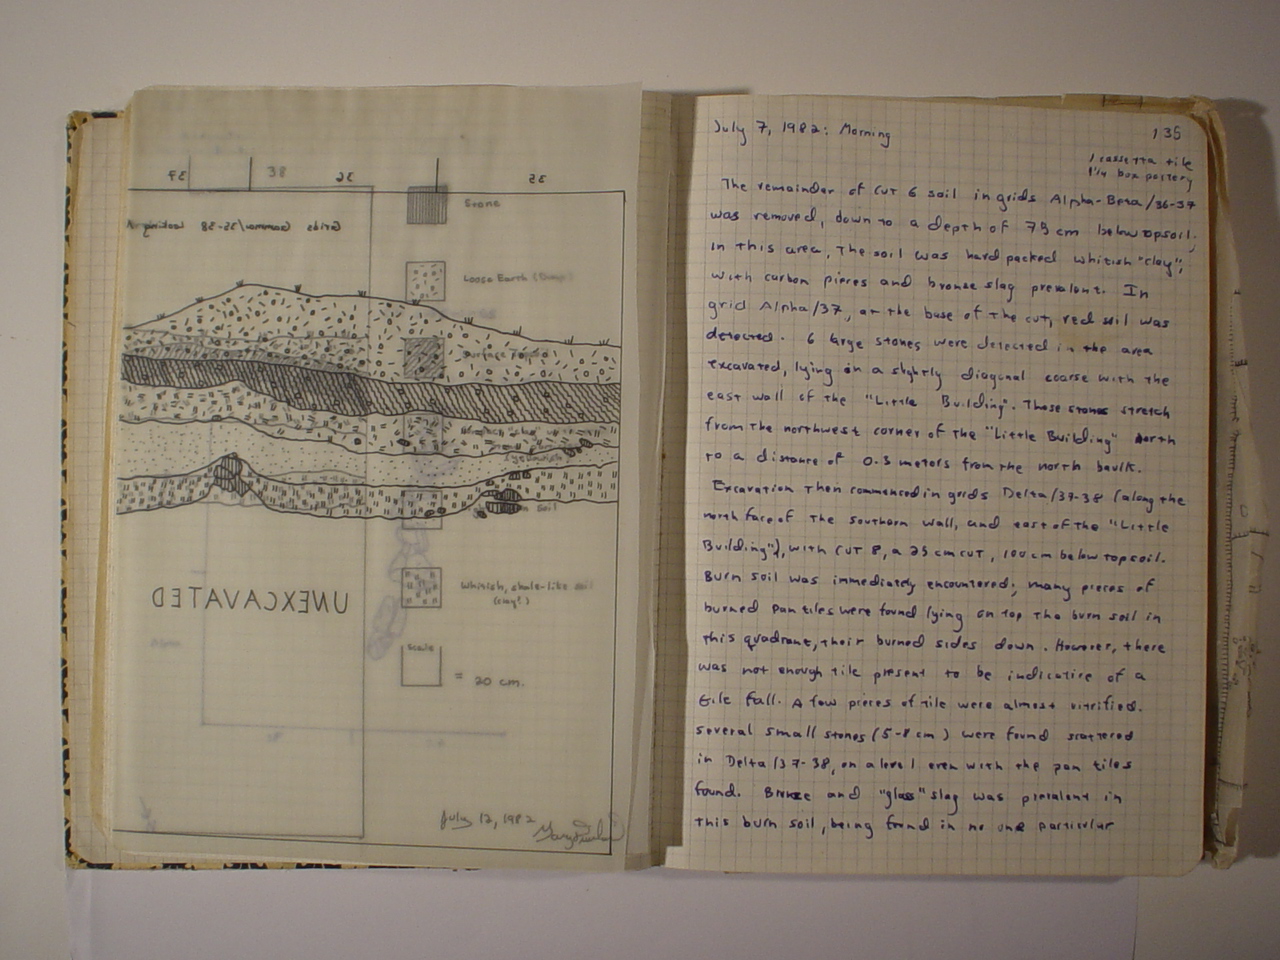 37
38
36
35
Grids Gamma/35-38 Looking
Stone
Loose Earth (Dump)
Surface
Soil
UNEXCAVATED
Whitish, shale-like soil
(clay?)
Scale
= 20 cm.
July 12, 1982
July 7, 1982: Morning
135
1 cassetta tile
1 1/4 box pottery
The remainder of CUT 6 soil in grids Alpha-Beta/36-37
was removed, down to a depth of 75 cm below topsoil.
In this area, The soil was hard packed whitish "clay",
with carbon pieces and bronze slag prevalent. In
grid Alpha/37, at the base of the cut, red soil was
detected. 6 large stones were detected in the area
excavated, lying on a slightly diagonal coarse with the
east wall of the "Little Building". These stones stretch
from the northwest corner of the "Little Building" north
to a distance of 0.3 meters from the north baulk.
Excavation Then commenced in grids Delta/37-38 (along the
north face of the southern wall, and east of the "Little
Building"), with CUT 8, a 25 cm cut, 100 cm below topsoil.
Burn soil was immediately encountered; many pieces of
burned pan tiles were found lying on top the burn soil in
this quadrant, their burned sides down. However, there
was not enough tile present to be indicative of a
tile fall. A few pieces of tile were almost vitrified.
Several small stones (5-8 cm) were found scattered
in Delta/37-38, on a level even with the pan tiles
found. Bronze and "glass" slag was prevalent in
this burn soil, being found in no one particular